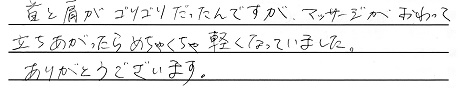 首と肩がゴリゴリだったんですが、マッサージがおわって
立ちあがったらめちゃくちゃ軽くなっていました。
ありがとうございます。